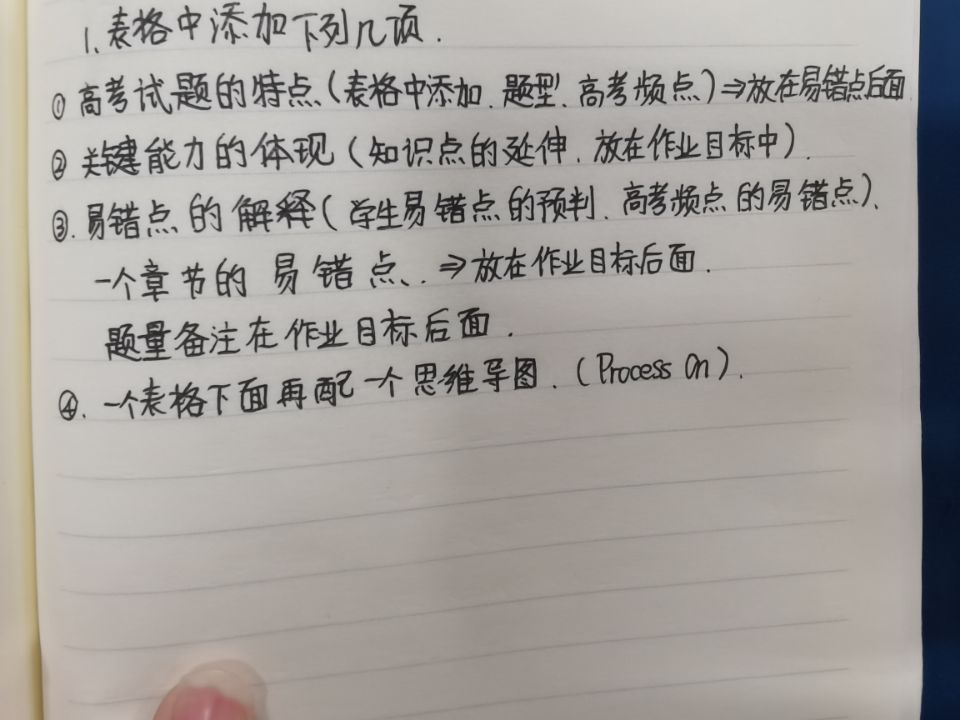 1、表格中添加下列几项.
① 高考试题的特点(表格中添加、题型、高考频点)⇒放在易错点后面.
② 关键能力的体现(知识点的延伸、放在作业目标中).
③. 易错点的解释(学生易错点的预判、高考频点的易错点)、
一个章节的易错点、⇒放在作业目标后面.
题量备注在作业目标后面.
④. 一个表格下面再配一个思维导图.(Process On).